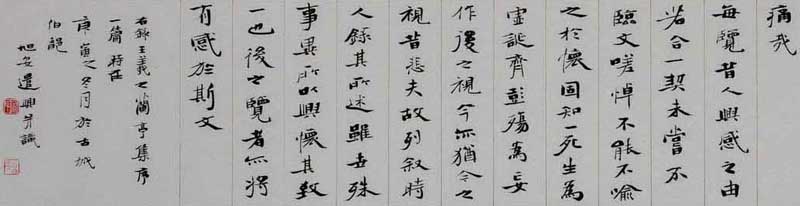 痛哉
每覽昔人興感之由
若合一契未嘗不
臨文嗟悼不能不喻
之於懷固知一死生為
虛誕齊彭殤為妄
作後之視今亦猶今之
視昔悲夫故列敘時
人錄其所述雖世殊
事異所以興懷其致
一也後之覽者亦將
有感於斯文
右錄王羲之蘭亭集序
一篇時在
庚寅之冬月於古城
遣興并識